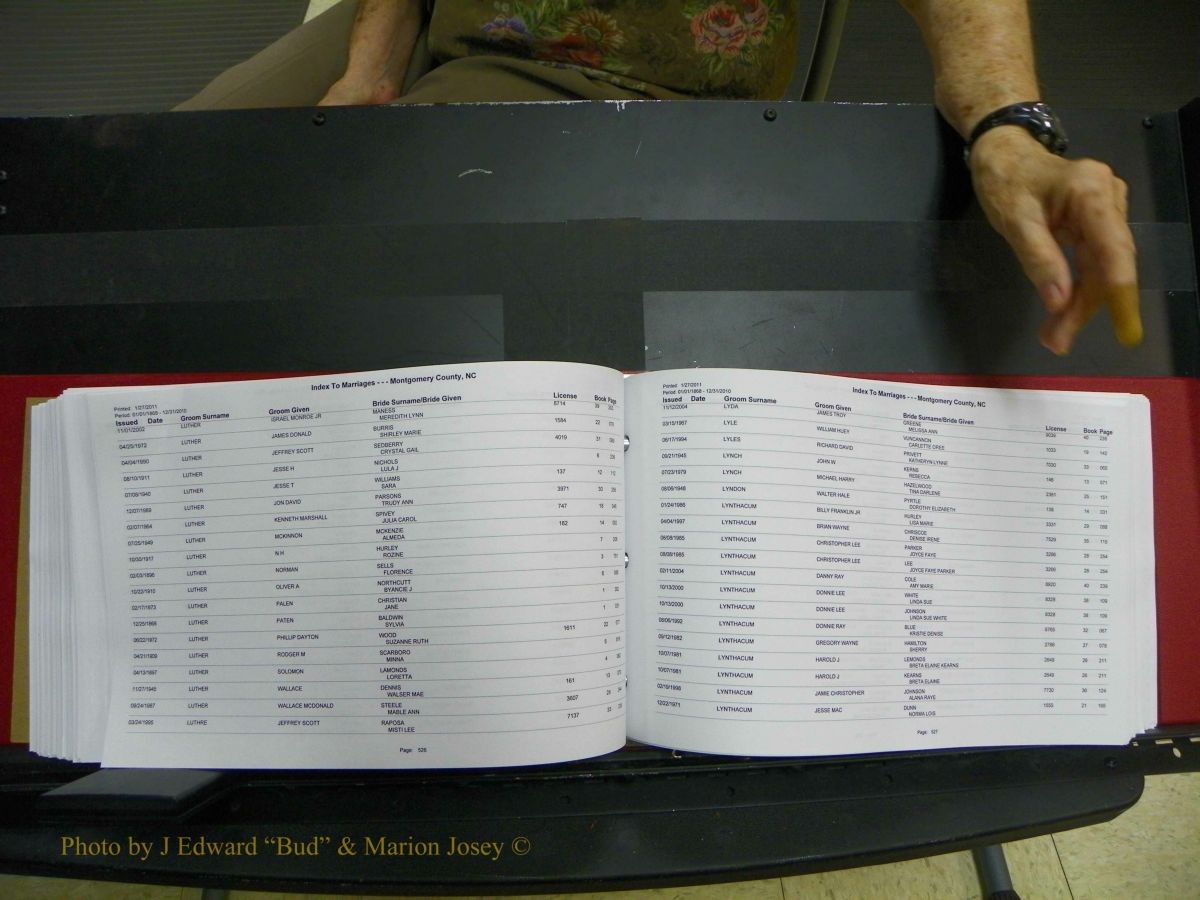 Index To Marriages - - - Montgomery County, NC
Printed 1/27/2011
Period: 01/01/1868 - 12/31/2010
Issued Date Groom Surname Groom Given Bride Surname/Bride Given License Book Page
11/01/2002 LUTHER ISRAEL MONROE JR MANESS 8714
MEREDITH LYNN
04/20/1973 LUTHER JAMES DONALD BURRIS 1584 22
SHIRLEY MARIE
04/04/1990 LUTHER JEFFREY SCOTT SEDBERRY 4019 31
CRYSTAL GAIL
08/10/1911 LUTHER JESSE H NICHOLS 6
LULA J
07/06/1940 LUTHER JESSE T WILLIAMS 137 12
SARA
12/07/1989 LUTHER JON DAVID PARSONS 3971 30
TRUDY ANN
02/07/1964 LUTHER KENNETH MARSHALL SPIVEY 747 18
JULIA CAROL
07/25/1949 LUTHER MCKINNON MCKENZIE 182 14
ALMEDA
10/30/1917 LUTHER N H HURLEY 7
ROZINE
02/03/1896 LUTHER NORMAN SELLS 3
FLORENCE
10/22/1910 LUTHER OLIVER A NORTHCUTT 6
BYANCIE J
02/17/1873 LUTHER PALEN CHRISTIAN 1
JANE
12/25/1868 LUTHER PATEN BALDWIN 1
SYLVIA
06/22/1972 LUTHER PHILLIP DAYTON WOOD 1611 22
SUZANNE RUTH
04/21/1909 LUTHER RODGER M SCARBORO
MINNA
04/13/1897 LUTHER SOLOMON LAMONDS 4
LORETTA
11/27/1945 LUTHER WALLACE DENNIS 161 13
WALSER MAE
09/24/1987 LUTHER WALLACE MCDONALD STEELE 3607
MABLE ANN
03/24/1995 LUTHRE JEFFREY SCOTT RAPOSA 7137 33
MISTI LEE
Page: 526
Index To Marriages - - - Montgomery County, NC
Printed 1/27/2011
Period: 01/01/1868 - 12/31/2010
Issued Date Groom Surname Groom Given Bride Surname/Bride Given License Book Page
11/12/2004 LYDA JAMES TROY GREENE 9039 40
MELISSA ANN
03/15/1967 LYLE WILLIAM HUEY VUNCANNON 1033 19 142
CARLETTE OREE
06/17/1994 LYLES RICHARD DAVID PRIVETT 7030 33
KATHERYN LYNNE
09/21/1945 LYNCH JOHN W KERNS 148 13 071
REBECCA
07/23/1979 LYNCH MICHAEL HARRY HAZELWOOD 2381 25 151
TINA DARLENE
08/06/1948 LYNDON WALTER HALE PYRTLE 14 331
DOROTHY ELIZABETH
01/24/1986 LYNTHACUM BILLY FRANKLIN JR HURLEY 3331 29 088
LISA MARIE
04/04/1997 LYNTHACUM BRIAN WAYNE CHRISCOE 7529 35 110
DENISE IRENE
06/08/1985 LYNTHACUM CHRISTOPHER LEE PARKER 3266 28 254
JOYCE FAYE
08/08/1985 LYNTHACUM CHRISTOPHER LEE LEE 3266 28 254
JOYCE FAYE PARKER
02/11/2004 LYNTHACUM DANNY RAY COLE 8920 40 239
AMY MARIE
10/13/2000 LYNTHACUM DONNIE LEE WHITE 8328 38 109
LINDA SUE
10/13/2000 LYNTHACUM DONNIE LEE JOHNSON 8328 38 109
LINDA SUE WHITE
06/06/1992 LYNTHACUM DONNIE RAY BLUE 32 067
KRISTIE DENISE
09/12/1982 LYNTHACUM GREGORY WAYNE HAMILTON 2786 27 078
SHERRY
10/07/1981 LYNTHACUM HAROLD J LEMONDS 2649 26 211
BRETA ELAINE KEARNS
10/07/1981 LYNTHACUM HAROLD J KEARNS 2649 26 211
BRETA ELAINE
02/19/1998 LYNTHACUM JAMIE CHRISTOPHER JOHNSON 7730 36 124
ALANA RAYE
12/22/1971 LYNTHACUM JESSE MAC DUNN 1555 21
NORMA LOIS
Page: 527
Photo by J Edward “Bud” & Marion Josey ©